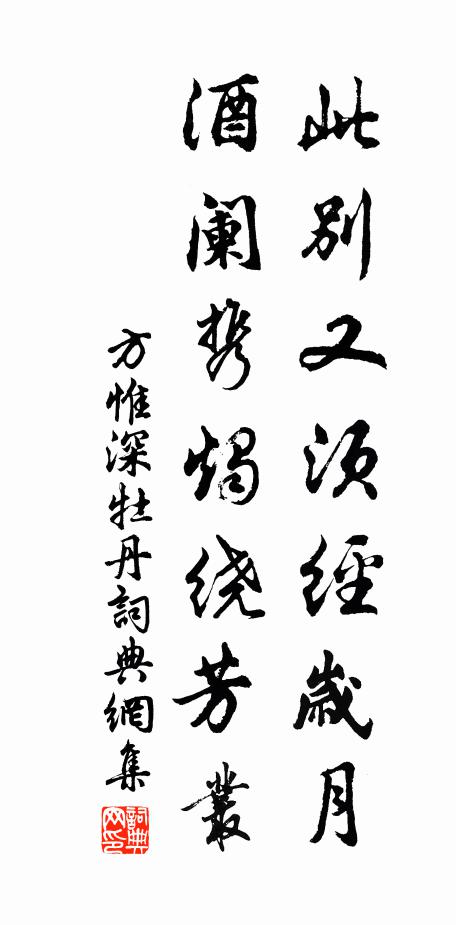 此别又须經歲月
酒阑携燭绕芳叢
方惟深牡丹詞典網集
詞典网印